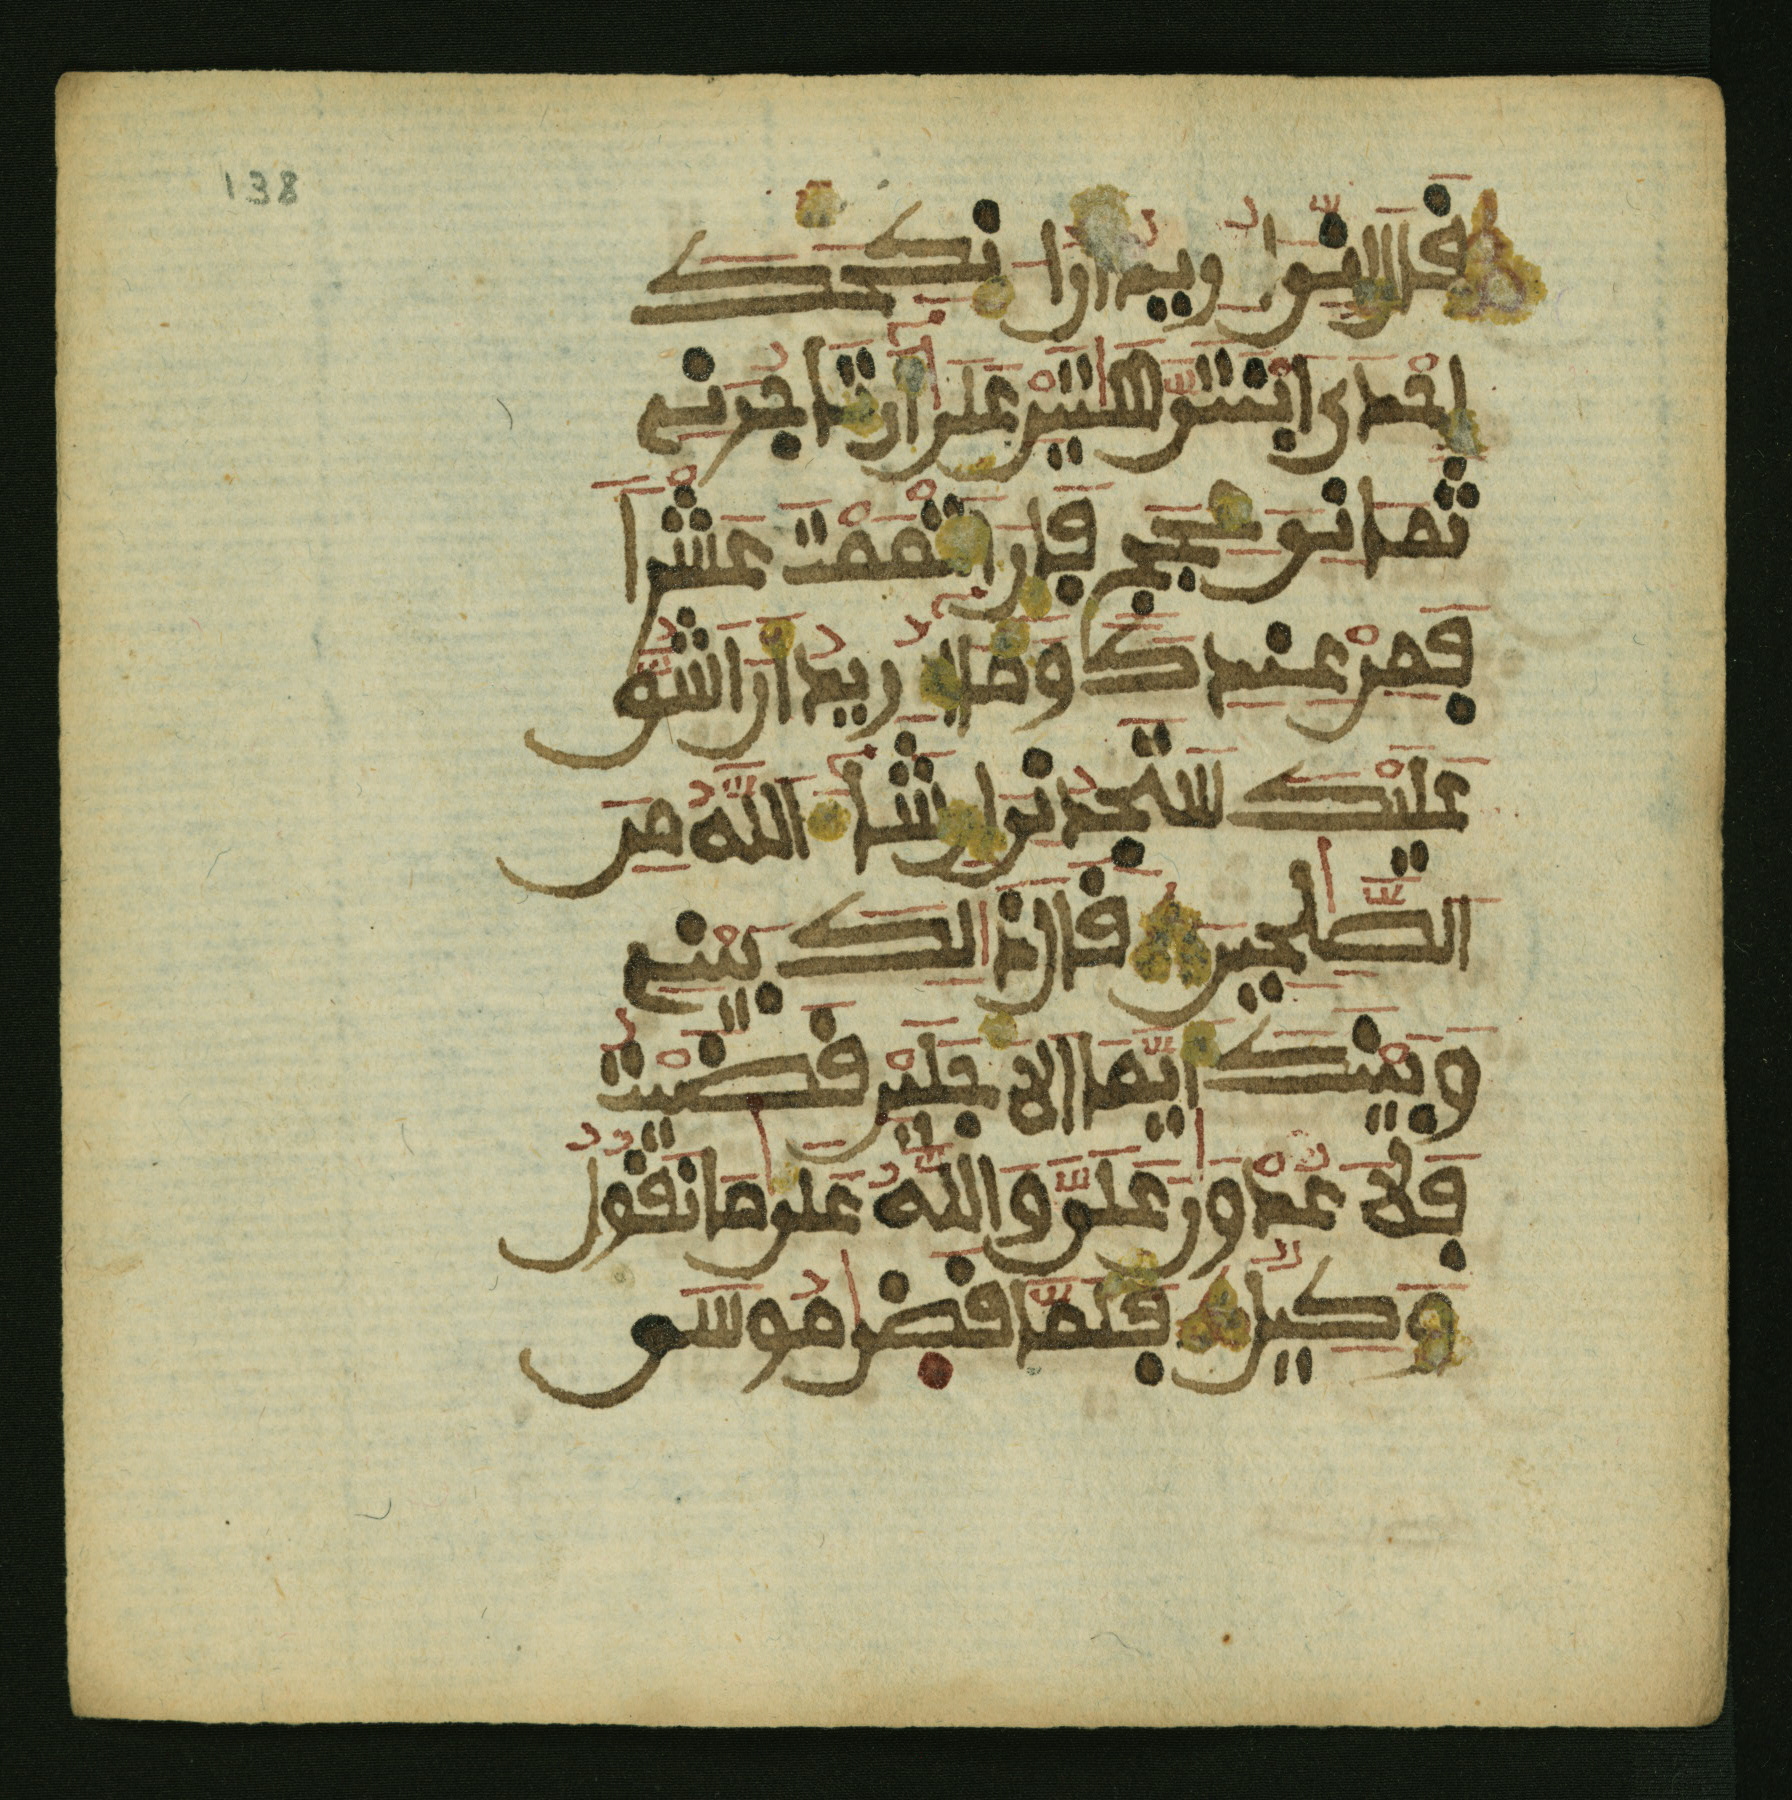 138
قَالَ إِنِّي أُرِيدُ أَنْ أُنكِحَكَ
إِحْدَى ابْنَتَيَّ هَٰتَيْنِ عَلَىٰ أَن تَأْجُرَنِي
ثَمَانِيَ حِجَجٍ فَإِنْ أَتْمَمْتَ عَشْرًا
فَمِنْ عِندِكَ وَمَا أُرِيدُ أَنْ أَشُقَّ
عَلَيْكَ سَتَجِدُنِي إِن شَاءَ اللَّهُ مِنَ
الصَّٰلِحِينَ قَالَ ذَٰلِكَ بَيْنِي
وَبَيْنَكَ أَيَّمَا الْأَجَلَيْنِ قَضَيْتُ
فَلَا عُدْوَٰنَ عَلَيَّ وَاللَّهُ عَلَىٰ مَا نَقُولُ
وَكِيلٌ فَلَمَّا قَضَىٰ مُوسَى